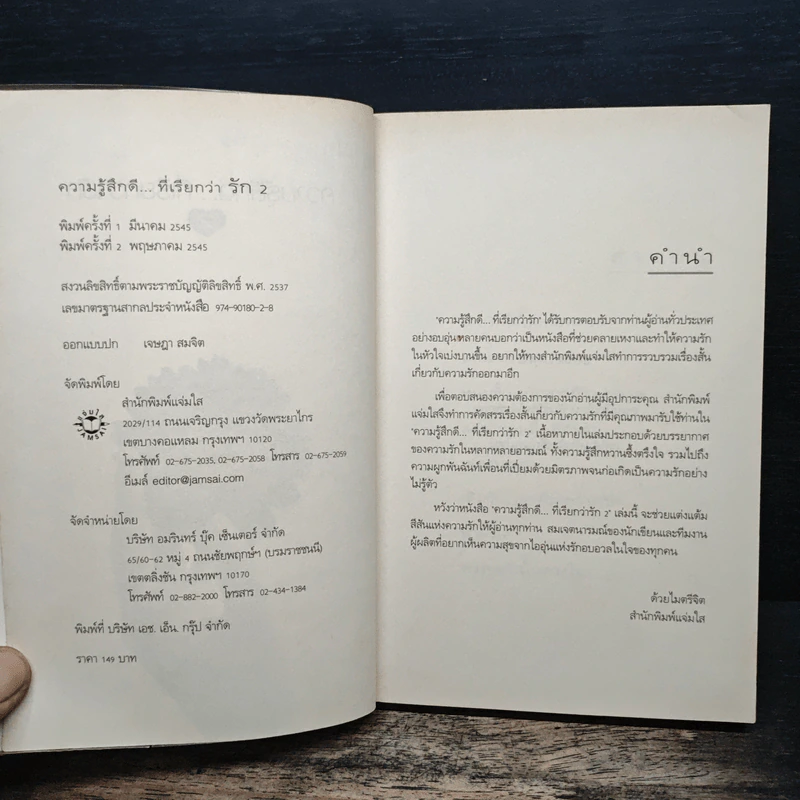 ความรู้สึกดี... ที่เรียกว่า รัก 2
พิมพ์ครั้งที่ 1 มีนาคม 2545
พิมพ์ครั้งที่ 2 พฤษภาคม 2545
สงวนลิขสิทธิ์ตามพระราชบัญญัติลิขสิทธิ์ พ.ศ. 2537
เลขมาตรฐานสากลประจำหนังสือ 974-90180-2-8
ออกแบบปก เจษฎา สมจิต
จัดพิมพ์โดย
สำนักพิมพ์แจ่มใส
JAMSAI
2029/114 ถนนเจริญกรุง แขวงวัดพระยาไกร
เขตบางคอแหลม กรุงเทพฯ 10120
โทรศัพท์ 02-675-2035, 02-675-2058 โทรสาร 02-675-2059
อีเมล์ editor@jamsai.com
จัดจำหน่ายโดย
บริษัท อมรินทร์ บุ๊ค เซ็นเตอร์ จำกัด
65/60-62 หมู่ 4 ถนนชัยพฤกษ์ฯ (บรมราชชนนี)
เขตตลิ่งชัน กรุงเทพฯ 10170
โทรศัพท์ 02-882-2000 โทรสาร 02-434-1384
พิมพ์ที่ บริษัท เอช. เอ็น. กรุ๊ป จำกัด
ราคา 149 บาท
คำนำ
'ความรู้สึกดี... ที่เรียกว่ารัก' ได้รับการตอบรับจากท่านผู้อ่านทั่วประเทศ
อย่างอบอุ่น หลายคนบอกว่าเป็นหนังสือที่ช่วยคลายเหงาและทำให้ความรัก
ในหัวใจเบ่งบานขึ้น อยากให้ทางสำนักพิมพ์แจ่มใสทำการรวบรวมเรื่องสั้น
เกี่ยวกับความรักออกมาอีก
เพื่อตอบสนองความต้องการของนักอ่านผู้มีอุปการะคุณ สำนักพิมพ์
แจ่มใสจึงทำการคัดสรรเรื่องสั้นเกี่ยวกับความรักที่มีคุณภาพมารับใช้ท่านใน
'ความรู้สึกดี... ที่เรียกว่ารัก 2' เนื้อหาภายในเล่มประกอบด้วยบรรยากาศ
ของความรักในหลากหลายอารมณ์ ทั้งความรู้สึกหวานซึ้งตรึงใจ รวมไปถึง
ความผูกพันฉันท์เพื่อนที่เปี่ยมด้วยมิตรภาพจนก่อเกิดเป็นความรักอย่าง
ไม่รู้ตัว
หวังว่าหนังสือ 'ความรู้สึกดี... ที่เรียกว่ารัก 2' เล่มนี้ จะช่วยแต่งแต้ม
สีสันแห่งความรักให้ผู้อ่านทุกท่าน สมเจตนารมณ์ของนักเขียนและทีมงาน
ผู้ผลิตที่อยากเห็นความสุขจากไออุ่นแห่งรักอบอวลในใจของทุกคน
ด้วยไมตรีจิต
สำนักพิมพ์แจ่มใส